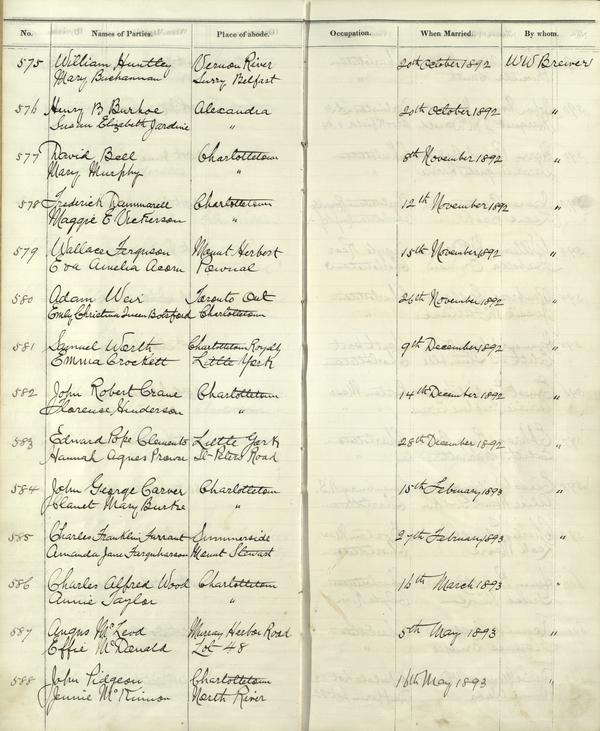 No. Names of Parties. Place of abode. Occupation. When Married. By whom.
575 William Huntley Vernon River 20th October 1892 WW Brewer
Mary Buchannan Surry Belfast
576 Henry B Burhoe Alexandra 20th October 1892 "
Susan Elizabeth Jardine "
577 David Bell Charlottetown 8th November 1892 "
Mary Murphy "
578 Frederick Charlottetown 12th November 1892 "
Maggie E Vickerson "
579 Wallace Ferguson Mount Herbert 15th November 1892 "
Eva Amelia Acorn Pownal
580 Adam Weir Toronto Ont 26th November 1892 "
Emly Christina Queen Botsford Charlottetown
581 Samuel Worth Charlottetown Royalty 9th December 1892 "
Emma Crockett Little York
582 John Robert Crane Charlottetown 14th December 1892 "
Florence Hinderson "
583 Edward Pope Clements Little York 28th December 1892 "
Hannah Agnes Prowse St Peters Road
584 John George Carver Charlottetown 15th February 1893 "
Mary Burke "
585 Charles Franklin Farrant Summerside 27th February 1893 "
Amanda Jane Farquharson Mount Stewart
586 Charles Alfred Wood Charlottetown 16th March 1893 "
Annie Taylor "
587 Angus McLeod Murray Harbor Road 5th May 1893 "
Effie McDonald Lot 48
588 John Pidgeon Charlottetown 16th May 1893 "
Jennie McKinnon North River